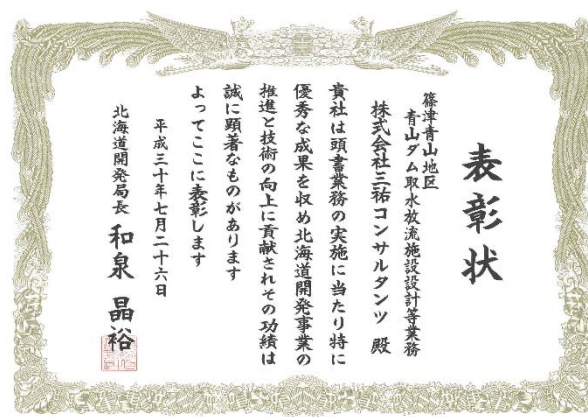 表彰状
篠津青山地区
青山ダム取水放流施設設計等業務
株式会社三祐コンサルタンツ 殿
貴社は頭書業務の実施に当たり特に
優秀な成果を収め北海道開発事業の
推進と技術の向上に貢献されその功績は
誠に顕著なものがあります
よってここに表彰します
平成三十年七月二十六日
北海道開発局長 和泉 晶裕